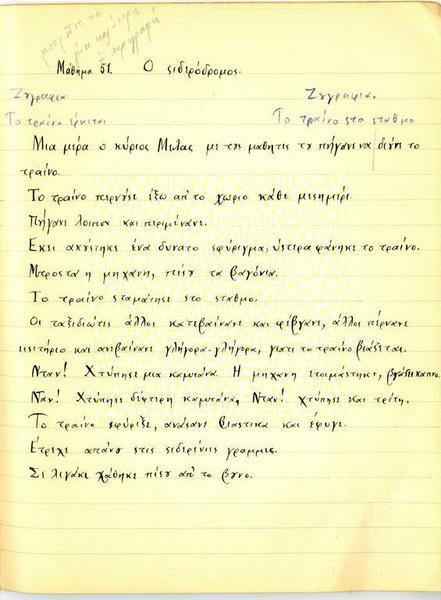 μπορείτε να
μια καλύτερη
περιγραφή
Μάθημα 51. Ο ςιδερόδρομος.
Ζυγραφια Ζυγραφια.
Το τραίνο έρχεται. Το τραίνο ςτο ςταθμο
Μια μέρα ο κύριος Μελας με τυς μαθητες τυ πήγανε να διύνε το
τραίνο.
Το τραίνο περνύςε έξω απ'το χωριο κάθε μεςημέρι.
Πήγανε λοιπον και περιμένανε.
Εκει ακύςτηκε ένα δυνατο ςφύριγμα, ύςτερα φάνηκε το τραίνο.
Μπροςτα η μηχανη, πίςυ τα βαγόνια.
Το τραίνο ςταμάτηςε ςτο ςταθμο.
Οι ταξιδιώτες άλλοι κατεβαίνανε και φέβγανε, άλλοι πέρνανε
ειςιτήριο και ανεβαίνανε γλήγορα-γλήγορα, γιατι το τραίνο βιάζεται.
Νταν! Χτύπηςε μια καμπάνα. Η μηχανη ετοιμάςτηκε, βγάζει καπνο.
Νταν! Χτύπηςε δέφτερη καμπάνα, Νταν! χτύπηςε και τρίτη.
Το τραίνο ςφύριξε, ανάςανε βιαςτικα και έφυγε.
Ετρεχε απάνυ ςτις ςιδερένιες γραμμες.
Σε λιγάκι χάθηκε πίςυ απ'το βυνο.